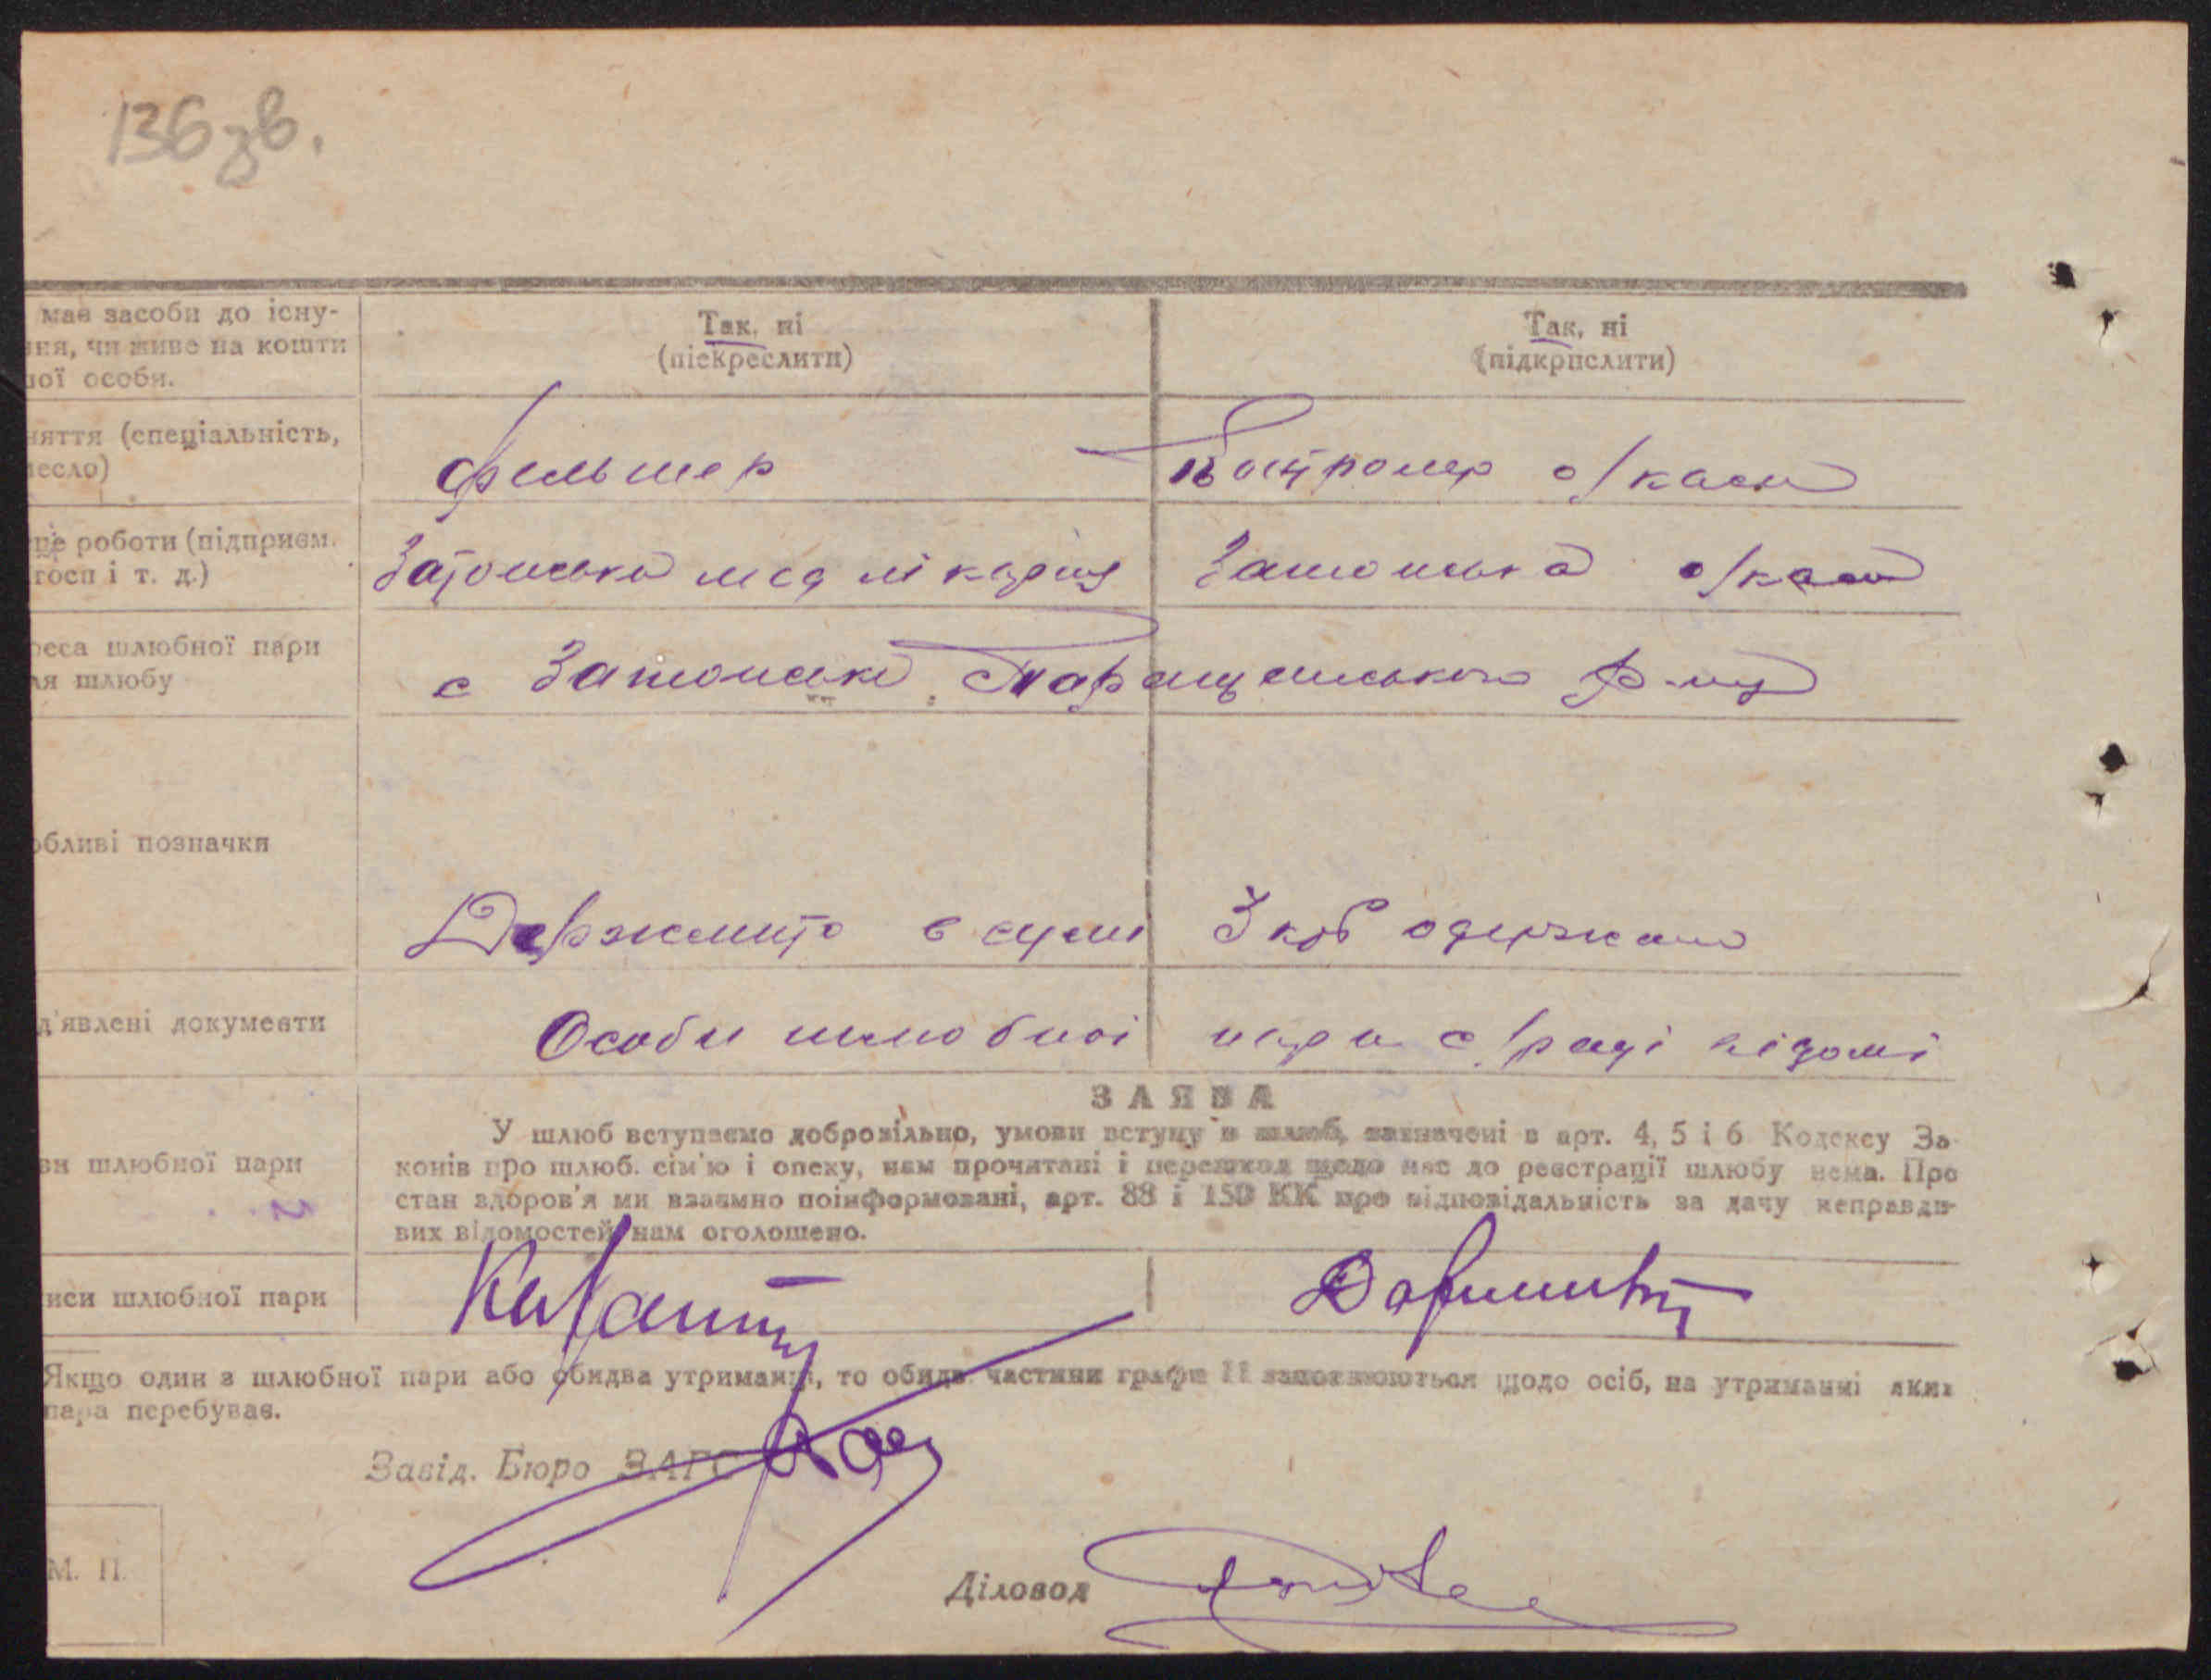 136 зв.
має засоби до існу-
ня, чи живе на кошти
ої особи.
Так, ні
(піекреслити)
Так, ні
(підкрислити)
няття (спеціальність,
есло)
фельшер
с/каси
це роботи (підприєм.
госп і т. д.)
Затонська мед
Затонська с/каса
реса шлюбної пари
ля шлюбу
с Затонське Таращенського р-ну
обливі позначки
Держмито в сумі 3 крб одержано
д'явлені документи
Особи шлюбної пари с/раді відомі
ви шлюбної пари
ЗАЯВА
У шлюб вступаємо добровільно, умови вступу в шлюб, зазначені в арт. 4, 5 і 6 Кодексу За-
конів про шлюб. сім'ю і опеку, нам прочитані і перешкод щодо нас до реєстрації шлюбу нема. Про
стан здоров'я ми взаємно поінформовані, арт. 88 і 150 КК про відповідальність за дачу неправди-
вих відомостей нам оголошено.
иси шлюбної пари
Якщо один з шлюбної пари або обидва утриманці, то обидві частини графи 11 заповнюються щодо осіб, на утриманні яких
пара перебуває.
Завід. Бюро ЗАГС
М. П.
Діловод